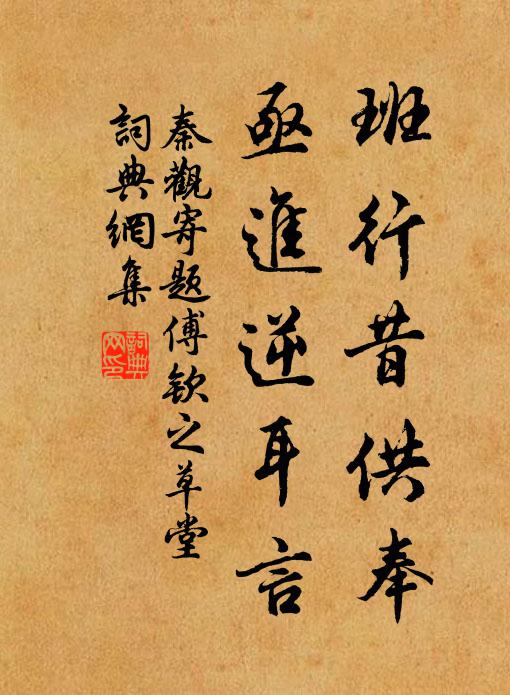 班行昔供奉
亟進逆耳言
秦觀寄題傅欽之草堂
詞典網集
詞典网印